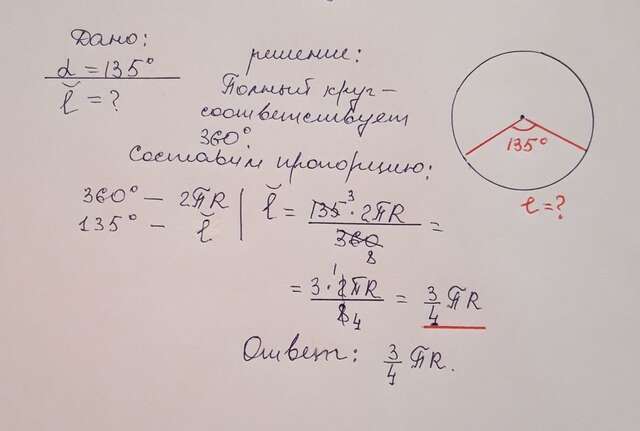 Дано:
α = 135°
l̆ = ?
решение:
Полный круг –
соответствует
360°.
Составим пропорцию:
360° – 2πR
135° – l̆
l̆ = 135 3 · 2πR / 360 8 =
= 3 · 2 1 πR / 8 4 = 3/4 πR
Ответ: 3/4 πR.
135°
l = ?